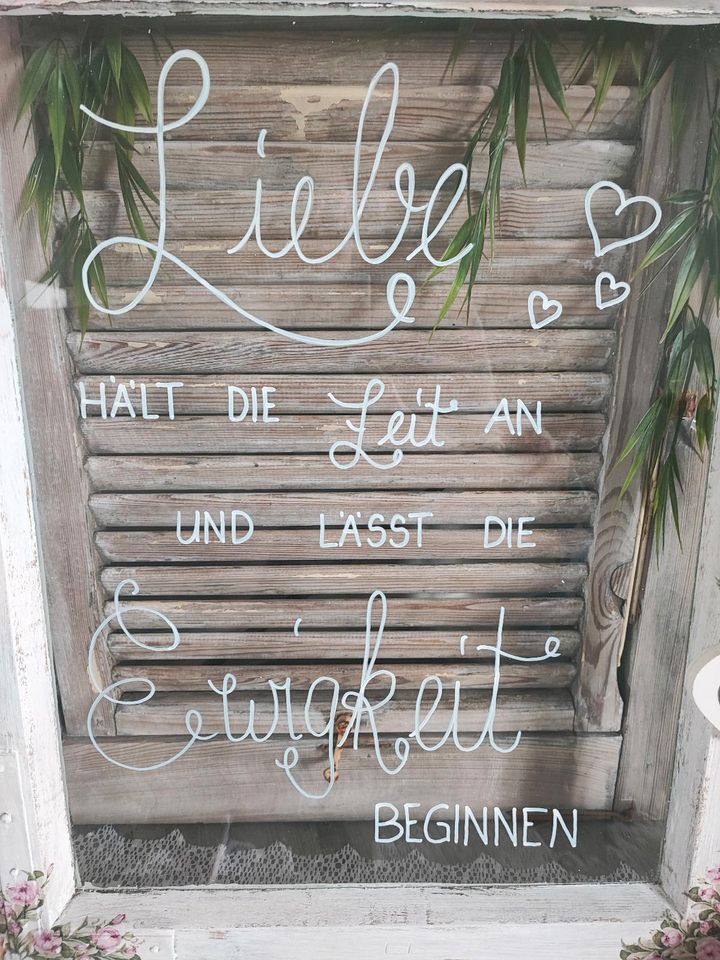 Liebe
HÄLT DIE Zeit AN
UND LÄSST DIE
Ewigkeit
BEGINNEN